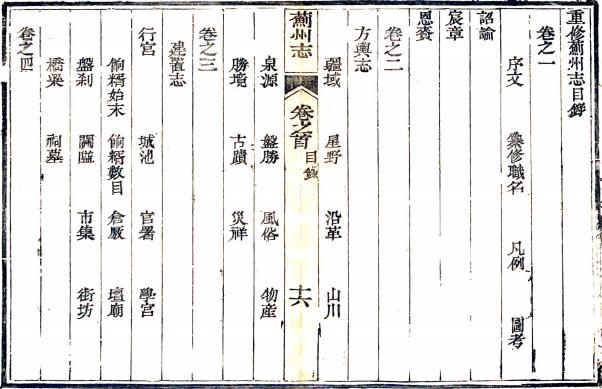 重修薊州志目錄
卷之一
序文 纂修職名 凡例 圖考
詔諭
宸章
恩賚
卷之二
方輿志
疆域 星野 沿革 山川
薊州志 卷之首 目錄 十六
泉源 盤勝 風俗 物產
勝境 古蹟 災祥
卷之三
建置志
行宮 城池 官署 學宮
始末 數目 倉廒 壇廟
盤刹 關隘 市集 街坊
橋梁 祠墓
卷之四